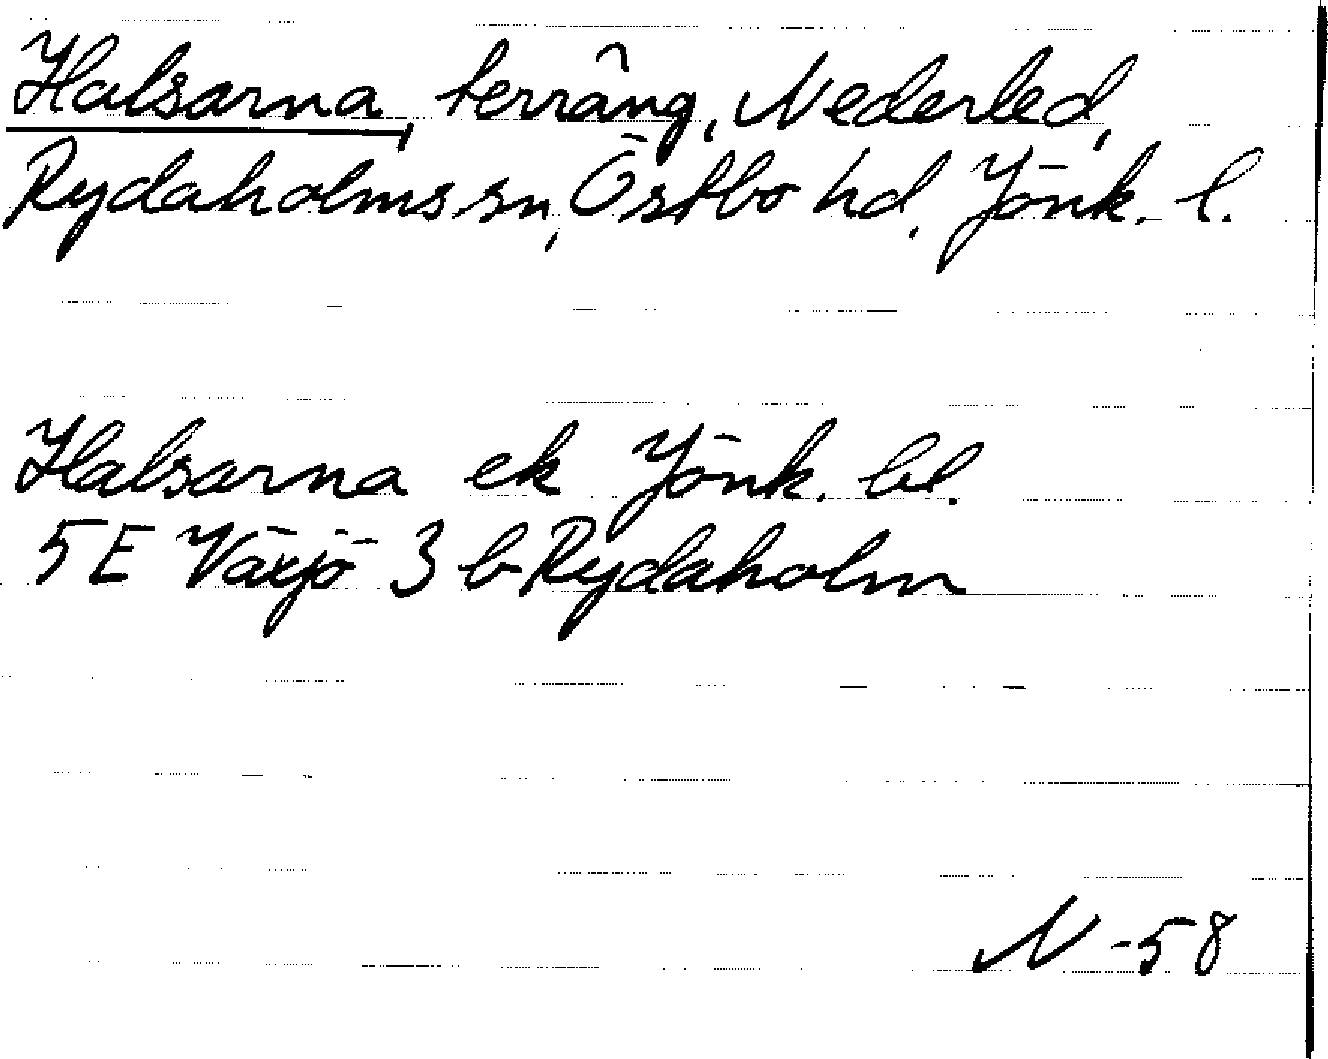 Halsarna, terräng, Nederled,
Rydaholms sn, Östbo hd, Jönk. l.
Halsarna ek Jönk. bl.
5E Växjö 3 b Rydaholm
N -58